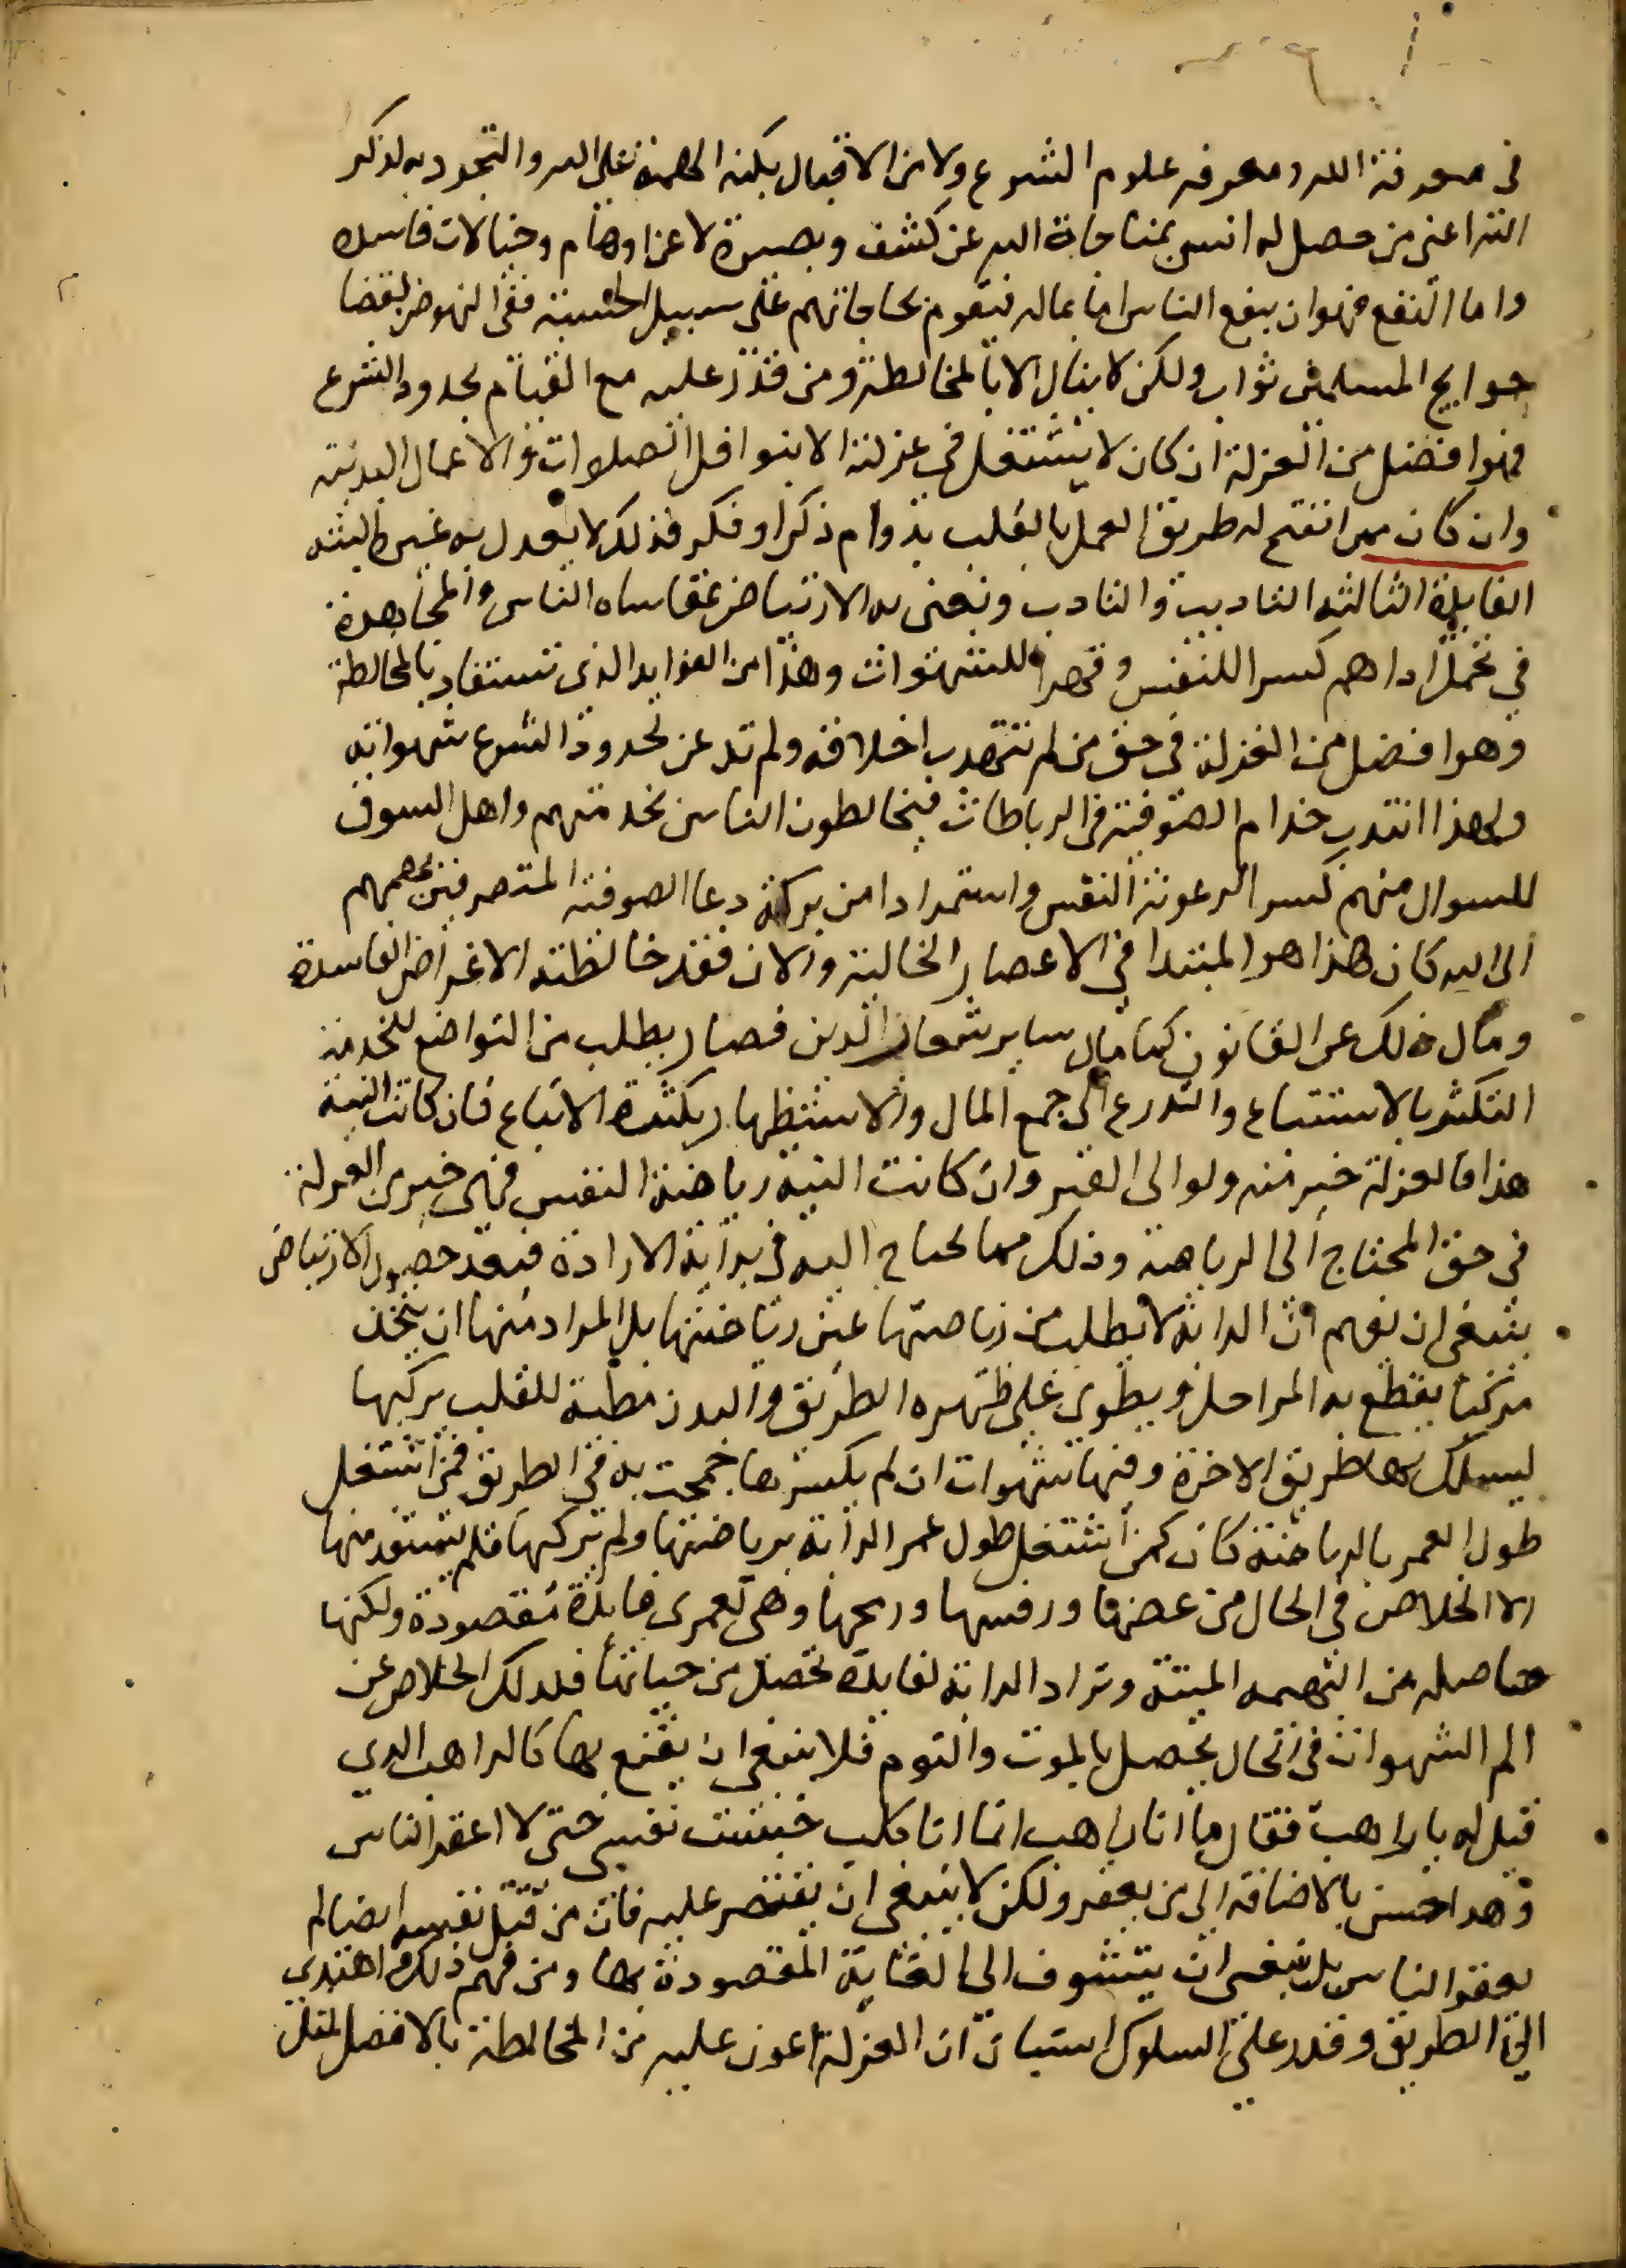 في معرفة الله ومعرفه علوم الشرع ولا من الاقبال بكنه الهمة على الله والتجرد به لذكر
الله اعني من حصل له انس بمناجاة الله عن كشف وبصيرة لا عن اوهام وخيالات فاسده
واما النفع فهو ان ينفع الناس اما بماله فيقوم بحاجاتهم على سبيل الحسبة ففي النهوض بقضا
حوايج المسلمين ثواب ولكن لا ينال الا بالمخالطة ومن قدر عليه مع القيام بحدود الشرع
فهو افضل من العزلة ان كان لا يشتغل في عزلته الا بنوافل الصلوات والاعمال البدنية
وان كان ممن انفتح له طريق العمل بالقلب بدوام ذكر او فكر فذلك لا يعدل به غيره البته
الفايدة الثالثه التاديب والتادب ونعني به الارتياض بمقاساه الناس والمجاهدة
في تحمل اداهم كسرا للنفس وقهرا للشهوات وهذا من الفوايد الذي تستفاد بالمخالطة
وهو افضل من العزلة في حق من لم تتهدب اخلاقه ولم تدعن لحدود الشرع شهواته
ولهذا انتدب خدام الصوفية في الرباطات فيخالطون الناس بخدمتهم واهل السوق
للسوال منهم كسرا لرعونة النفس واستمدادا من بركة دعا الصوفية المتصرفين بهممهم
الى الله كان هذا هو المبتدا في الاعصار الخالية والان فقد خالطته الاغراض الفاسدة
ومال ذلك عن القانون كما مال ساير شعار الدين فصار يطلب من التواضع للخدمة
التكثر بالاستتباع والتدرع الى جمع المال والاستظهار بكثرة الاتباع فان كانت النية
هذا فالعزلة خير منه ولو الى القبر وان كانت النية رياضة النفس فهي خير من العزلة
في حق المحتاج الى الرياضة وذلك مما يحتاج اليه في بداية الارادة فبعد حصول الارتياض
ينبغي ان يفهم ان الدابة لا يطلب من رياضتها عين رياضتها بل المراد منها ان يتخذ
مركبا يقطع به المراحل ويطوي على ظهره الطريق والبدن مطية للقلب يركبها
ليسلك بها طريق الاخرة وفيها شهوات ان لم يكسرها جمحت به في الطريق فمن اشتغل
طول العمر بالرياضة كان كمن اشتغل طول عمر الدابة برياضتها ولم يركبها فلم يستفد منها
الا الخلاص في الحال من عضها ورفسها ورمحها وهي لعمري فايدة مقصودة ولكنها
حاصله من البهيمه الميتة وتراد الدابة لفايدة تحصل من حياتها فلدلك الخلاص عن
الم الشهوات في الحال يحصل بالموت والنوم فلا ينبغي ان يقنع بها كالراهب الدي
قيل له يا راهب فقال ما انا راهب انما انا كلب حبست نفسي حتى لا اعقر الناس
وهدا حسن بالاضافة الى من يعقر ولكن لا ينبغي ان يقتصر عليه فان من قتل نفسه ايضا لم
يعقر الناس بل ينبغي ان يتشوف الى الغاية المقصودة بها ومن فهم ذلك واهتدي
الى الطريق وقدر على السلوك استبان ان العزلة اعون عليه من المخالطة بالافضل لمثل